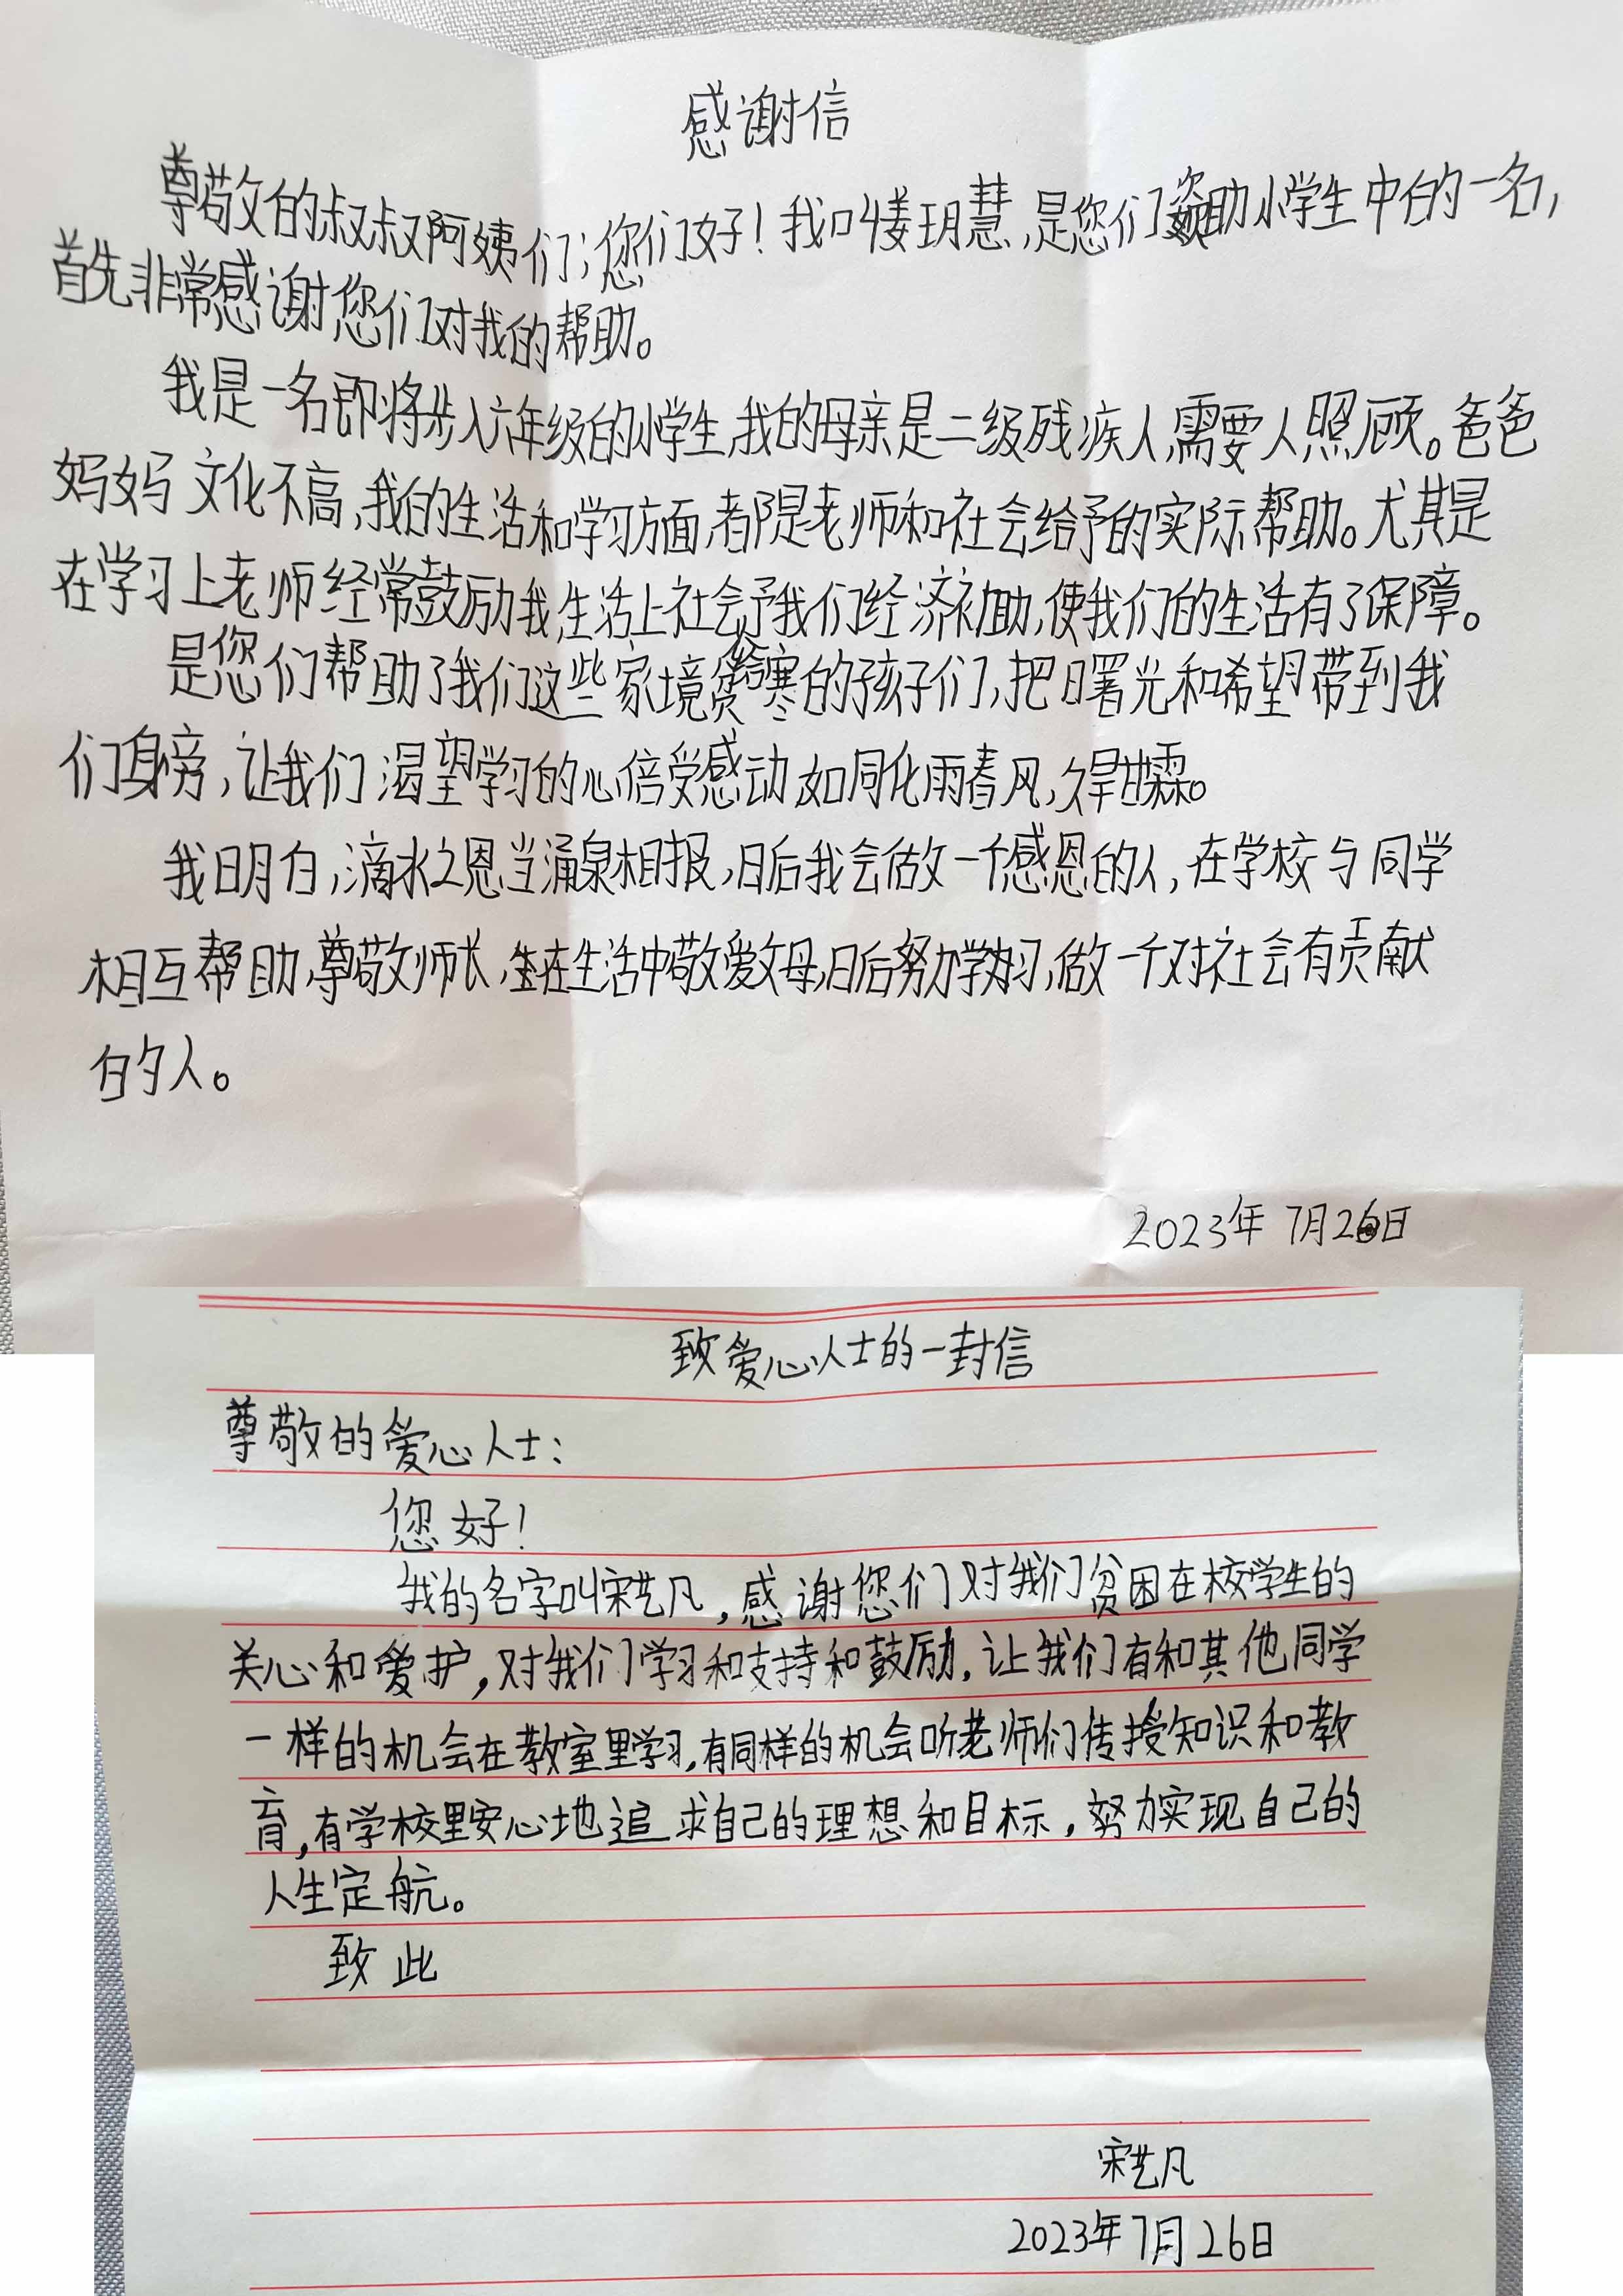 感谢信
尊敬的叔叔阿姨们；您们好！我叫娄玥慧，是您们资助小学生中的一名，
首先非常感谢您们对我的帮助。
我是一名即将步入六年级的小学生，我的母亲是二级残疾人，需要人照顾。爸爸
妈妈文化不高，我的生活和学习方面，都是老师和社会给予的实际帮助。尤其是
在学习上老师经常鼓励我，生活上社会给予我们经济补助，使我们的生活有了保障。
是您们帮助了我们这些家境贫寒的孩子们，把曙光和希望带到我
们身旁，让我们渴望学习的心倍受感动，如同化雨春风，久旱甘霖。
我明白，滴水之恩当涌泉相报，日后我会做一个感恩的人，在学校与同学
相互帮助，尊敬师长，在生活中敬爱父母，日后努力学习，做一个对社会有贡献
的人。
2023年7月26日
致爱心人士的一封信
尊敬的爱心人士：
您好！
我的名字叫宋艺凡，感谢您们对我们贫困在校学生的
关心和爱护，对我们学习和支持和鼓励，让我们有和其他同学
一样的机会在教室里学习，有同样的机会听老师们传授知识和教
育，有学校里安心地追求自己的理想和目标，努力实现自己的
人生定航。
致此
宋艺凡
2023年7月26日